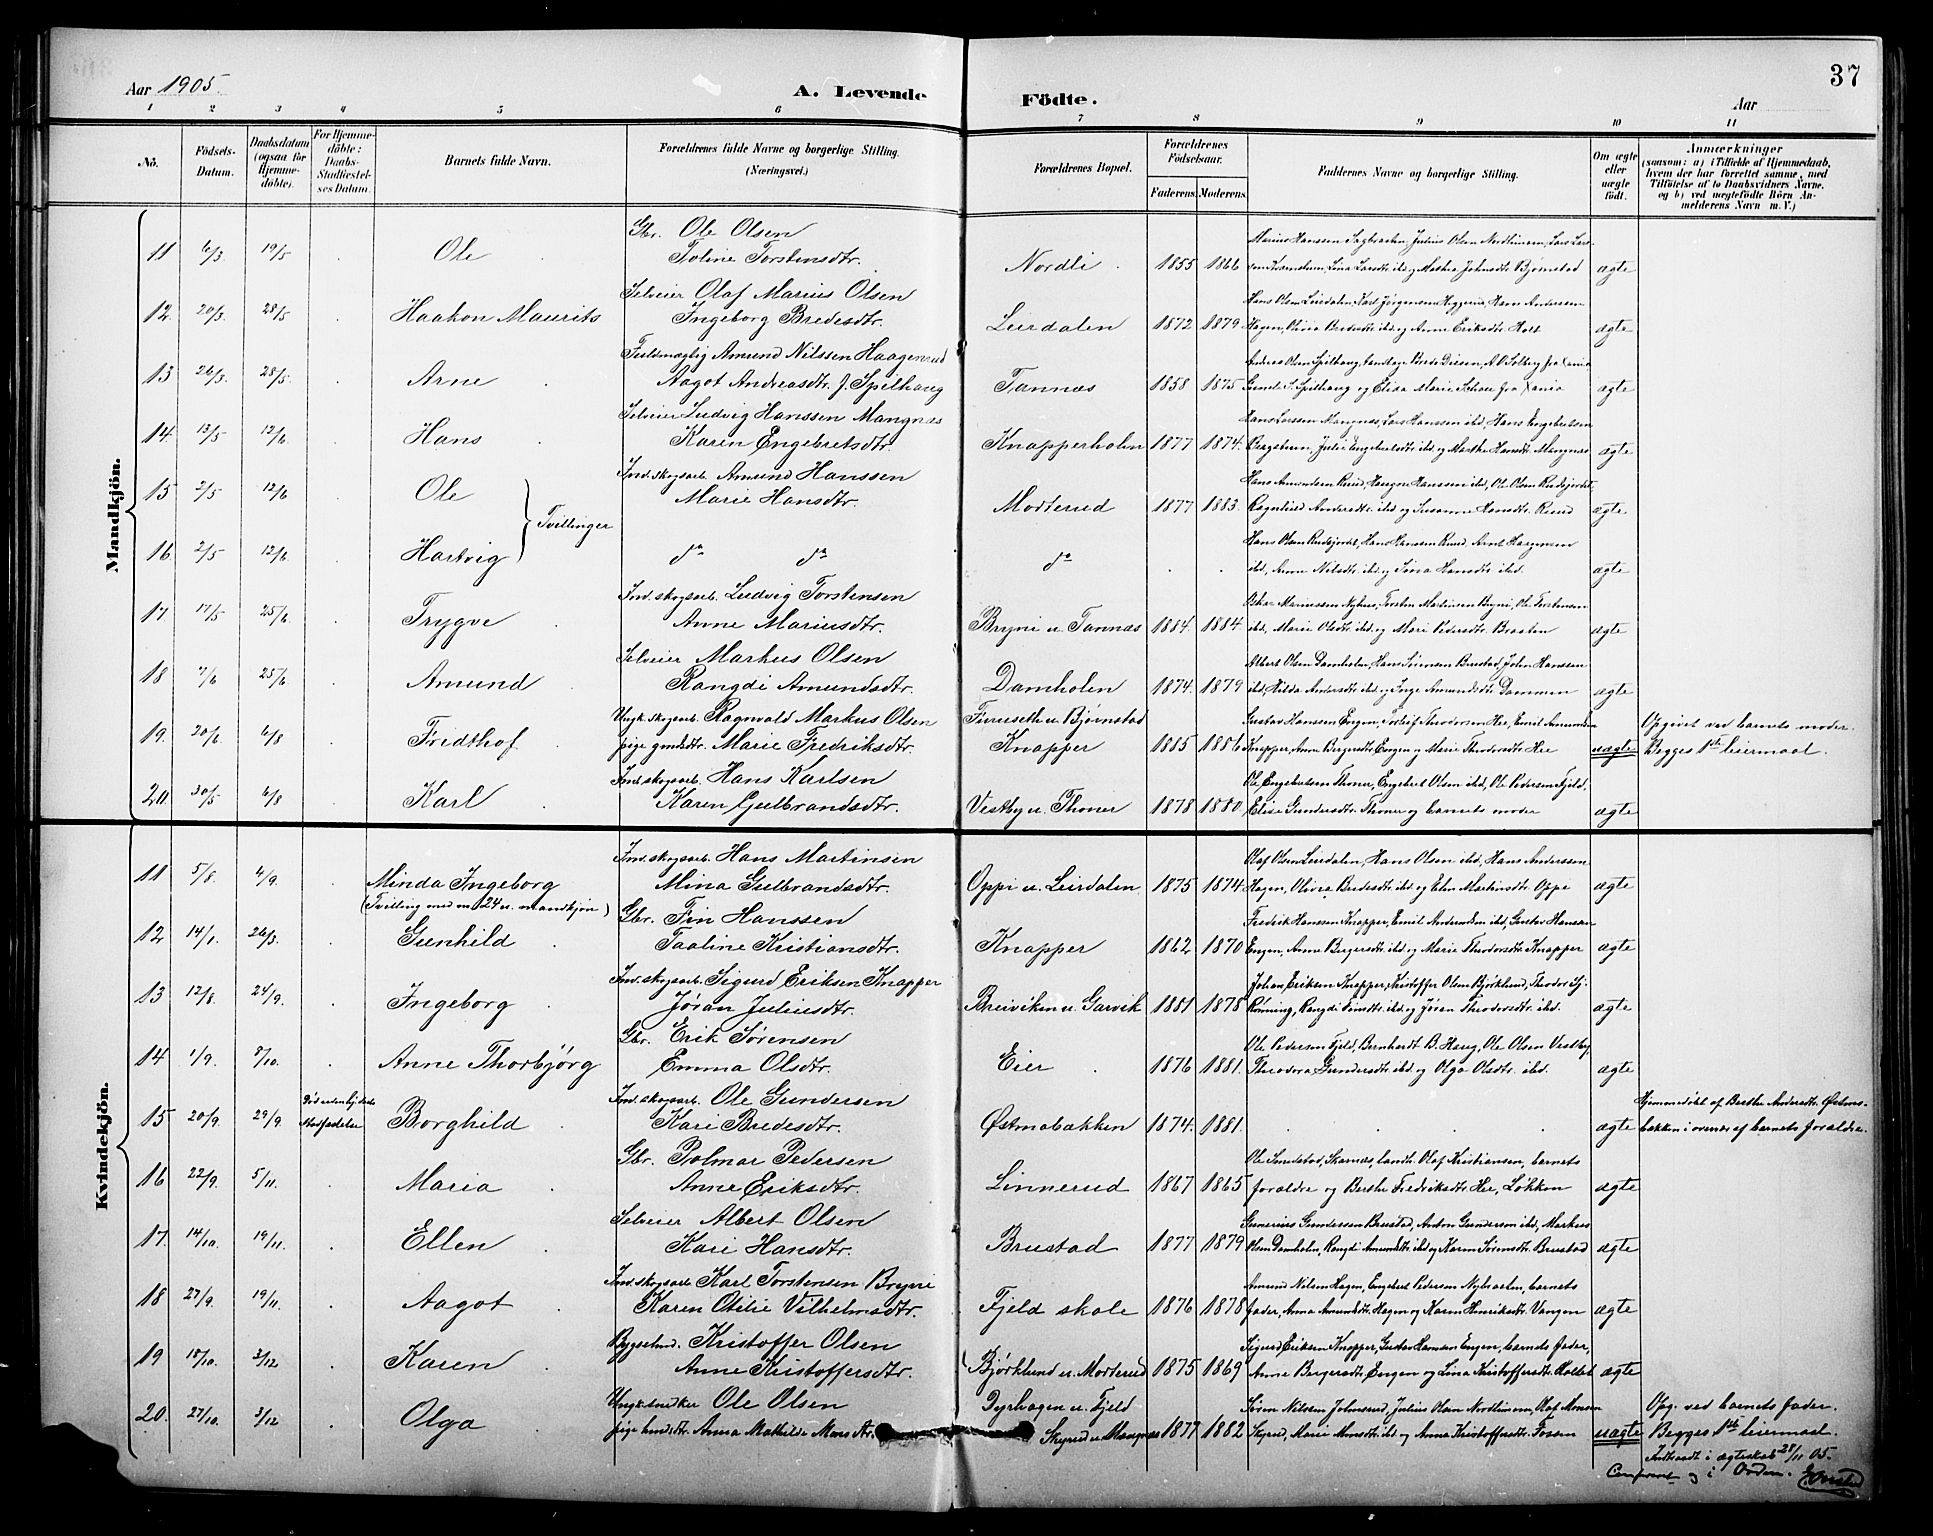 Aar 1905.
A. Levende Födte.
Aar
37
1 2 3 4 5 6 7 8 9 10 11
No. Födsels-Datum. Daabsdatum (ogsaa for Hjemmedöbte). For Hjemmedöbte: Daabs-Stadfæstelses Datum. Barnets fulde Navn. Forældrenes fulde Navne og borgerlige Stilling. (Næringsvei.) Forældrenes Bopæl. Forældrenes Födselsaar. Faderens. Moderens. Faddernes Navne og borgerlige Stilling. Om ægte eller uægte födt. Anmærkninger (saasom: a) i Tilfælde af Hjemmedaab, hvem der har forrettet samme, med Tilföielse af to Daabsvidners Navne, og b) ved uægtefödte Börn Anmelderens Navn m. V.)
Mandkjön.
Gbr. Ole Olsen
Marius Hanssen Sagbraaten, Julius Olsen Nordlimoen, Lars Lars-
11 6/3 19/5 Ole Toline Torstensdtr. Nordli 1855 1866 ægte
Selveier Olaf Marius Olsen
Hans Olsen Leirdalen, Karl Jørgensen Higgerud, Hans Anderssen
12. 20/3. 28/5 Haakon Maurits Ingeborg Bredesdtr. Leirdalen 1872 1879 Hagen, Olivia Bredesdtr. ibd. og Anne Eriksdtr. Holt ægte
Fuldmægtig Amund Nilssen Haagenrud
13 26/3. 28/5. Arne Aagot Andreasdtr. J. Spilhaug Tannæs 1858 1875 ægte
Selveier Ludvig Hanssen Mangnæs
Hans Larssen Mangnæs, Lars Hanssen ibd, Hans Engebretsen
14. 13/5 12/6 Hans Karen Engebretsdtr. Knapperholm 1877 1874. Bragstrum, Julie Engebretsdtr. ibd. og Marthe Hansdtr. Mangnæs ægte
Ind. skogsarb. Amund Hanssen
15 2/5 12/6 Ole Marie Hansdtr. Morterud 1877 1883. Ragnhild Andersdtr. ibd og Susanne Hansdtr. Ruud ægte
Tvillinger
16 2/5 12/6 Hartvig do do do ibd., Anne Nilsdtr. ibd. og Sina Hansdtr. ibd. ægte
Ind. skogsarb. Ludvig Torstensen
Oskar Mariussen Nyhus, Torsten Martinsen Bryni, Ole Torstensen
17 17/5 25/6 Trygve Anne Mariusdtr. Bryni u. Tannæs 1884. 1884 ibd., Marie Olsdtr. ibd. og Mari Pedersdtr. Braaten ægte
Selveier Markus Olsen
Albert Olsen Damholen, Hans Simensen Brustad, John Hanssen
18 7/6 25/6 Amund Rangdi Amundsdtr. Damholen 1874. 1879 ibd, Hilda Andersdtr. ibd og Inge Amundsdtr. Dammen ægte
Ungk. skogsarb. Ragnvald Markus Olsen Furuseth u. Bjørnstad Opgivet ved barnets moder.
19. 20/6 6/8 Fridthof pige gmdstr. Marie Fredriksdtr. Knapper 1885 1886 Knapper, Anne Bergersdtr. Engen og Marie Theodorsdtr. Hee uægte Begges 1ste leiermaal.
Ind. skogsarb. Hans Karlsen
Ole Engebretsen Thoner, Engebret Olsen ibd., Ole Pedersen Fjeld,
20. 30/5 6/8 Karl Karen Gulbrandsdtr. Vestby u. Thoner 1878 1880. Elise Gundersdtr. Thoner og barnets moder ægte
Kvindekjön.
Ind. skogsarb. Hans Martinsen
Olaf Olsen Leirdalen, Hans Olsen ibd., Hans Anderssen
11 5/8. 4/9. Minda Ingeborg Mina Gulbrandsdtr. Oppi u. Leirdalen 1875 1874. Hagen, Olivia Bredesdtr. ibd og Elen Martinsdtr. Oppi ægte
(Tvilling med no 24 u. mandkjøn) Gbr. Fin Hanssen
Fredrik Hanssen Knapper, Emil Andersen ibd, Gustav Hansen
12 14/1. 26/3. Gunhild Taaline Kristiansdtr. Knapper 1862 1870 Engen, Anne Bergersdtr. ibd. og Marie Theodorsdtr. Knapper ægte
Ind. skogsarb. Sigurd Eriksen Knapper
Johan Eriksen Knapper, Kristoffer Olsen Bjørklund, Theodor Sj.
13 12/8. 24/9. Ingeborg Jøran Juliusdtr. Breiviken u. Garvik 1881 1878 Rønning, Rangdi Simdtr. ibd. og Jøran Theodorsdtr. ibd. ægte
Gbr. Erik Sørensen
Ole Pedersen Fjeld, Bernhardt B. Haug, Ole Olsen Vestby,
14 1/9. 8/10. Anne Thorbjørg Emma Olsdtr. Eier 1876 1881. Theodora Gundersdtr. ibd. og Olga Olsdtr. ibd. ægte
Død uden kirkelig Ind. skogsarb. Ole Gundersen Hjemmedøbt af Berthe Andersdtr. Østma-
15 20/9. 29/9. stadfæstelse Borghild Kari Bredesdtr. Østmobakken 1874. 1881. ægte bakken i overvær af barnets forældre.
Gbr. Rolmar Pedersen
Ole Sundstad, Skarnæs, landh. Olaf Kristiansen, barnets
16 22/9. 5/11. Maria Anne Eriksdtr. Linnerud 1867 1865 forældre og Berthe Fredriksdtr. Hee, Løkken ægte
Selveier Albert Olsen
Gunerius Gundersen Brustad, Anton Gundersen ibd, Markus
17. 14/10. 19/11. Ellen Kari Hansdtr. Brustad 1877 1879 Olsen Damholen, Rangdi Amundsdtr. ibd og Karen Simensdtr. Brustad ægte
Ind. skogsarb. Karl Torstensen Bryni
Amund Nilsen Hagen, Engebret Pedersen Nybraaten, barnets
18 27/9. 19/11. Aagot Karen Otilie Vilhelmsdtr. Fjeld skole 1876 1878 fader, Anna Amundsdtr. Hagen og Karen Henriksdtr. Vangen ægte
Bygselmd. Kristoffer Olsen
Sigurd Eriksen Knapper, Gustav Hansen Engen, barnets fader,
19 18/10. 3/12 Karen Anne Kristoffersdtr. Bjørklund u. Morterud 1875 1869 Anne Bergersdtr. Engen og Lina Kristoffersdtr. Holtet ægte
Ungk. snedker Ole Olsen Dyrhagen u. Fjeld Opg. ved barnets fader.
20. 27/10. 3/12 Olga pige husdtr. Anna Mathilde Monsdtr. Skyrud u. Mangnæs 1877 1882 Skyrud, Marie Monsdtr. ibd. og Anna Kristoffersdtr. Fossen uægte Begges 1ste leiermaal.
Indtraadt i ægteskab 28/11 05.
Conferert og i Orden.